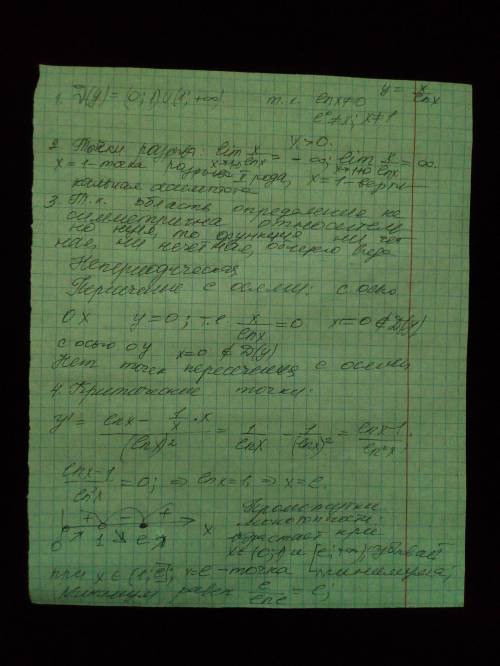 y = x/lnx
1. D(y) = (0; 1) ∪ (1; +∞) т.к. lnx≠0
e⁰≠x; x≠1
x>0.
2. Точки разрыва: lim x/lnx = -∞; lim x/lnx = ∞.
x=1 - точка разрыва II рода, x=1 - верти-
кальная асимптота
3. Т.к. область определения не
симметрична относитель-
но нуля, то функция ни чёт-
ная, ни нечётная, общего вида
Непериодическая
Пересечение с осями: с осью
OX y=0; т.е. x/lnx = 0 x=0 ∉ D(y)
с осью OY x=0 ∉ D(y)
Нет точек пересечения с осями
4. Критические точки:
y' = (lnx - 1/x · x)/(lnx)² = 1/lnx - 1/(lnx)² = (lnx-1)/ln²x;
(lnx-1)/ln²x = 0; ⇒ lnx=1; ⇒ x=e
+ - +
0 1 e x
Промежутки
монотонности:
возрастает при
x∈(0;1) и (e;+∞) убывает
при x∈(1;e); x=e - точка минимума;
Минимум равен e/lne = e;